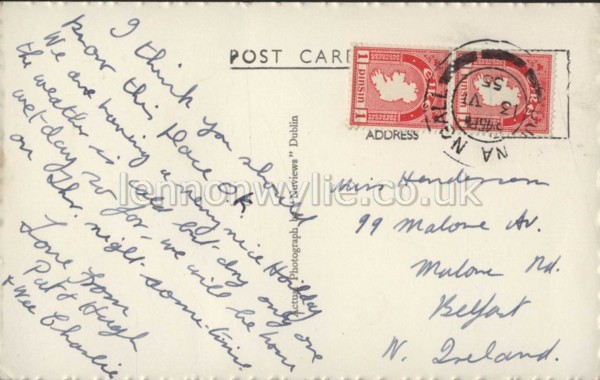 POST CARD
I think you should
know this place OK
We are having a very nice Holiday
the weather is cold but dry only one
wet day so far - we will be home
on Thr. night some-time
Love from
Pat, Hugh
+ Wee Charlie
1 pinsin 1
éire
ADDRESS
NA NGALL
13 VI
55
Actual Photograph "Noviews" Dublin
Miss Henderson
99 Malone Av.
Malone Rd.
Belfast
N. Ireland.
lennonwylie.co.uk